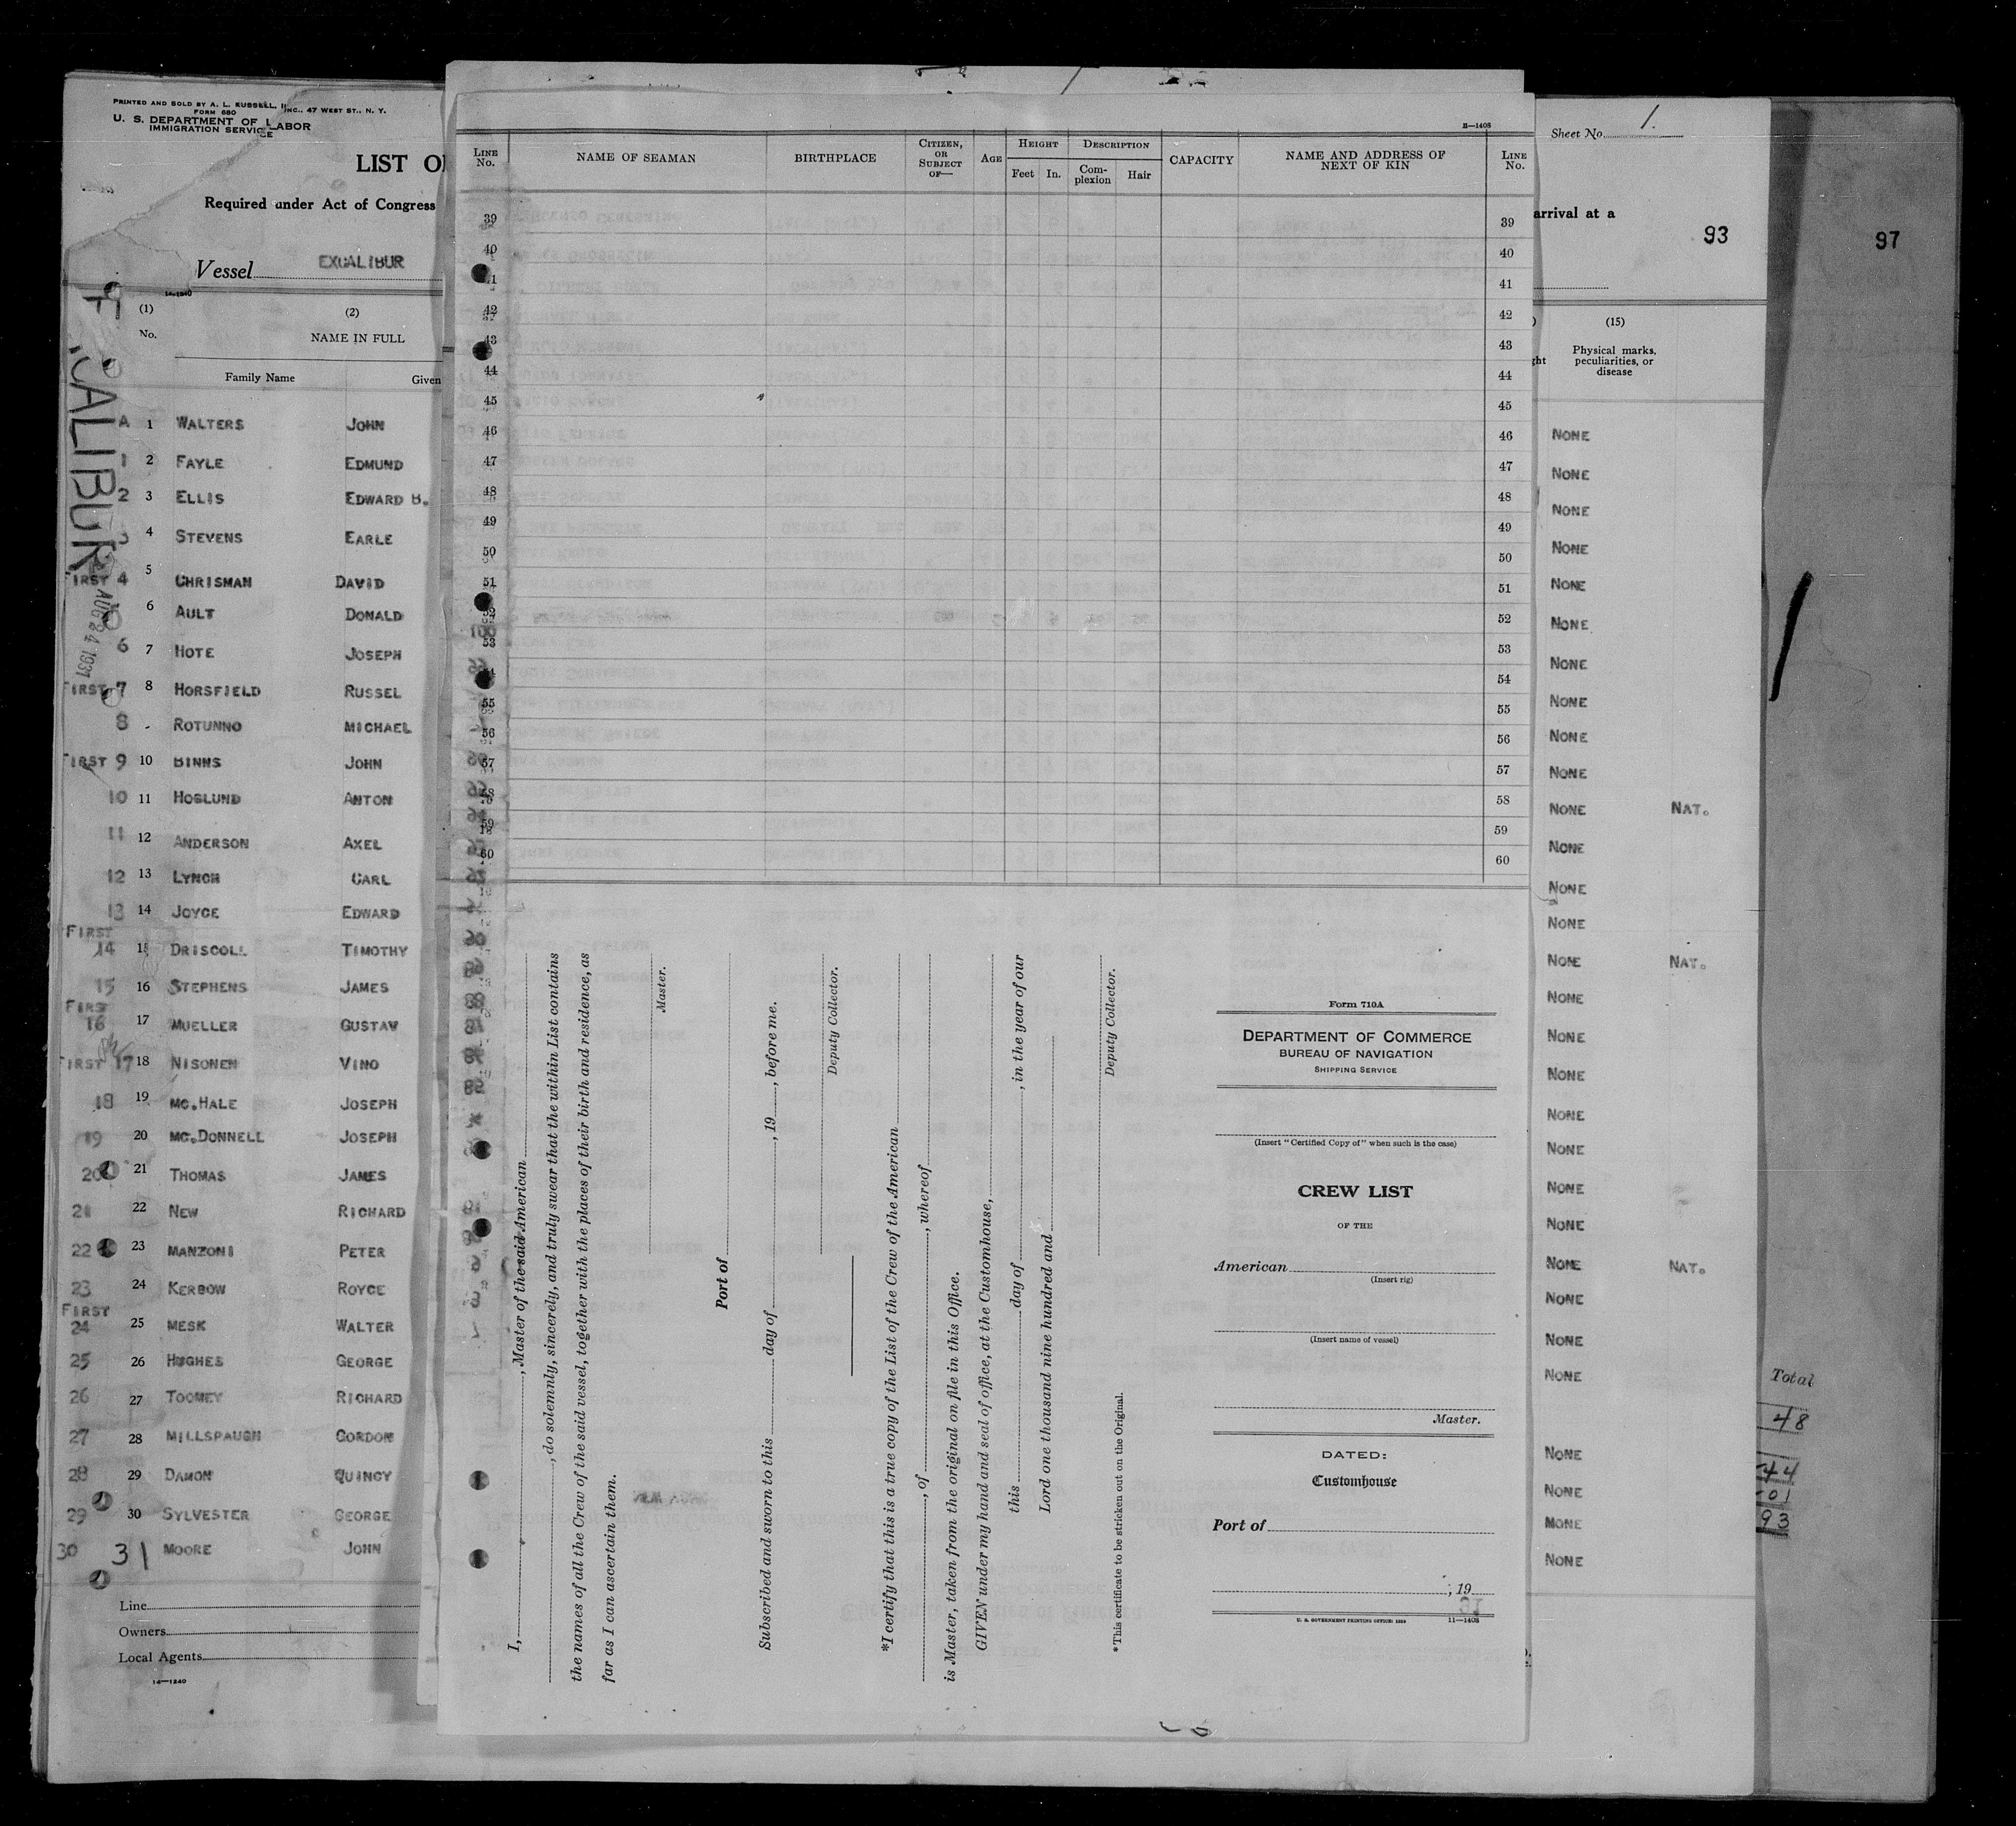 PRINTED AND SOLD BY A. L. RUSSELL, INC., 47 WEST ST., N. Y.
FORM 680
U. S. DEPARTMENT OF LABOR
IMMIGRATION SERVICE
LIST O
Required under Act of Congress
Vessel EXCALIBUR
14-1240
(1) (2)
No. NAME IN FULL
Family Name Given
A 1 WALTERS JOHN
1 2 FAYLE EDMUND
2 3 ELLIS EDWARD B.
3 4 STEVENS EARLE
FIRST 4 5 CHRISMAN DAVID
6 AULT DONALD
6 7 HOTE JOSEPH
FIRST 7 8 HORSFIELD RUSSEL
8 - ROTUNNO MICHAEL
FIRST 9 10 BINNS JOHN
10 11 HOGLUND ANTON
11 12 ANDERSON AXEL
12 13 LYNCH CARL
13 14 JOYCE EDWARD
FIRST
14 15 DRISCOLL TIMOTHY
15 16 STEPHENS JAMES
FIRST
16 17 MUELLER GUSTAV
FIRST 17 18 NISONEN VINO
18 19 MC.HALE JOSEPH
19 20 MC.DONNELL JOSEPH
20 21 THOMAS JAMES
21 22 NEW RICHARD
22 23 MANZONI PETER
23 24 KERBOW ROYCE
FIRST
24 25 MESK WALTER
25 26 HUGHES GEORGE
26 27 TOOMEY RICHARD
27 28 MILLSPAUGH GORDON
28 29 DAMON QUINCY
29 30 SYLVESTER GEORGE
30 31 MOORE JOHN
Line
Owners
Local Agents
14-1240
CALIBUR
AUG 24 1937
11-1408
LINE No. NAME OF SEAMAN BIRTHPLACE CITIZEN, OR SUBJECT OF— AGE HEIGHT Feet In. DESCRIPTION Com-plexion Hair CAPACITY NAME AND ADDRESS OF NEXT OF KIN LINE No.
39 39
40 40
41 41
42 42
43 43
44 44
45 45
46 46
47 47
48 48
49 49
50 50
51 51
52 52
53 53
54 54
55 55
56 56
57 57
58 58
59 59
60 60
I, , Master of the said American
, do solemnly, sincerely, and truly swear that the within List contains
the names of all the Crew of the said vessel, together with the places of their birth and residence, as
far as I can ascertain them.
Master.
Port of
Subscribed and sworn to this day of , 19 , before me.
Deputy Collector.
*I certify that this is a true copy of the List of the Crew of the American
, of , whereof
is Master, taken from the original on file in this Office.
GIVEN under my hand and seal of office, at the Customhouse,
this day of , in the year of our
Lord one thousand nine hundred and
Deputy Collector.
*This certificate to be stricken out on the Original.
Form 710A
DEPARTMENT OF COMMERCE
BUREAU OF NAVIGATION
SHIPPING SERVICE
(Insert "Certified Copy of" when such is the case)
CREW LIST
OF THE
American
(Insert rig)
(Insert name of vessel)
Master.
DATED:
Customhouse
Port of
, 19
U. S. GOVERNMENT PRINTING OFFICE: 11-1408
Sheet No. 1.
arrival at a
93
97
(15)
Physical marks, peculiarities, or disease
NONE
NONE
NONE
NONE
NONE
NONE
NONE
NONE
NONE
NONE
NONE NAT.
NONE
NONE
NONE
NONE NAT.
NONE
NONE
NONE
NONE
NONE
NONE
NONE
NONE NAT.
NONE
NONE
NONE
NONE
NONE
NONE
NONE
Total
48
44
01
93